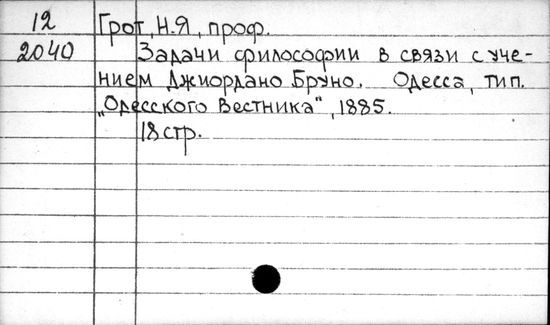 12
2040
Грот, Н.Я, проф.
Задачи философии в связи с уче-
нием Джиордано Бруно. Одесса, тип.
„Одесского Вестника", 1885.
18 стр.